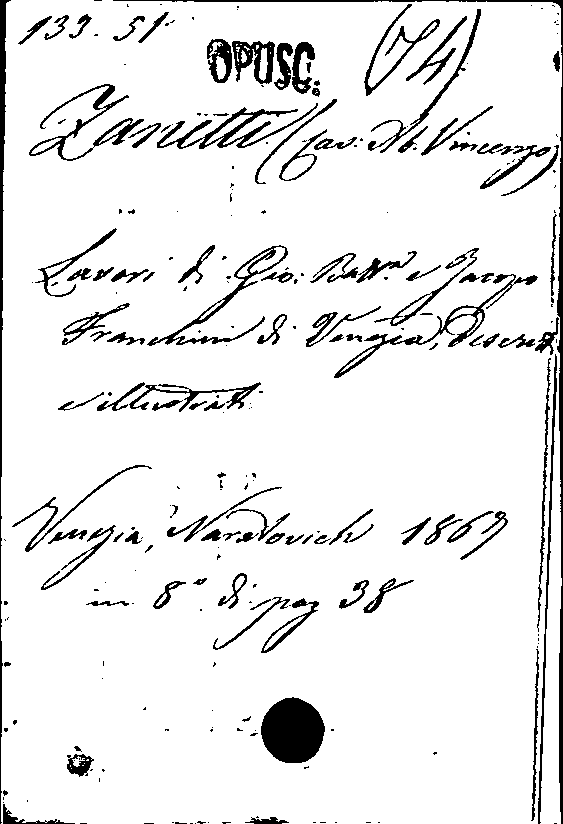 133. 51
OPUSC.
(74)
Zanetti (Cav: Ab. Vincenzo)
Lavori di Gio: Batta e Jacopo
Franchini di Venezia, descritti
e illustrati
Venezia, Naratovich 1867
in 8° di pag 38